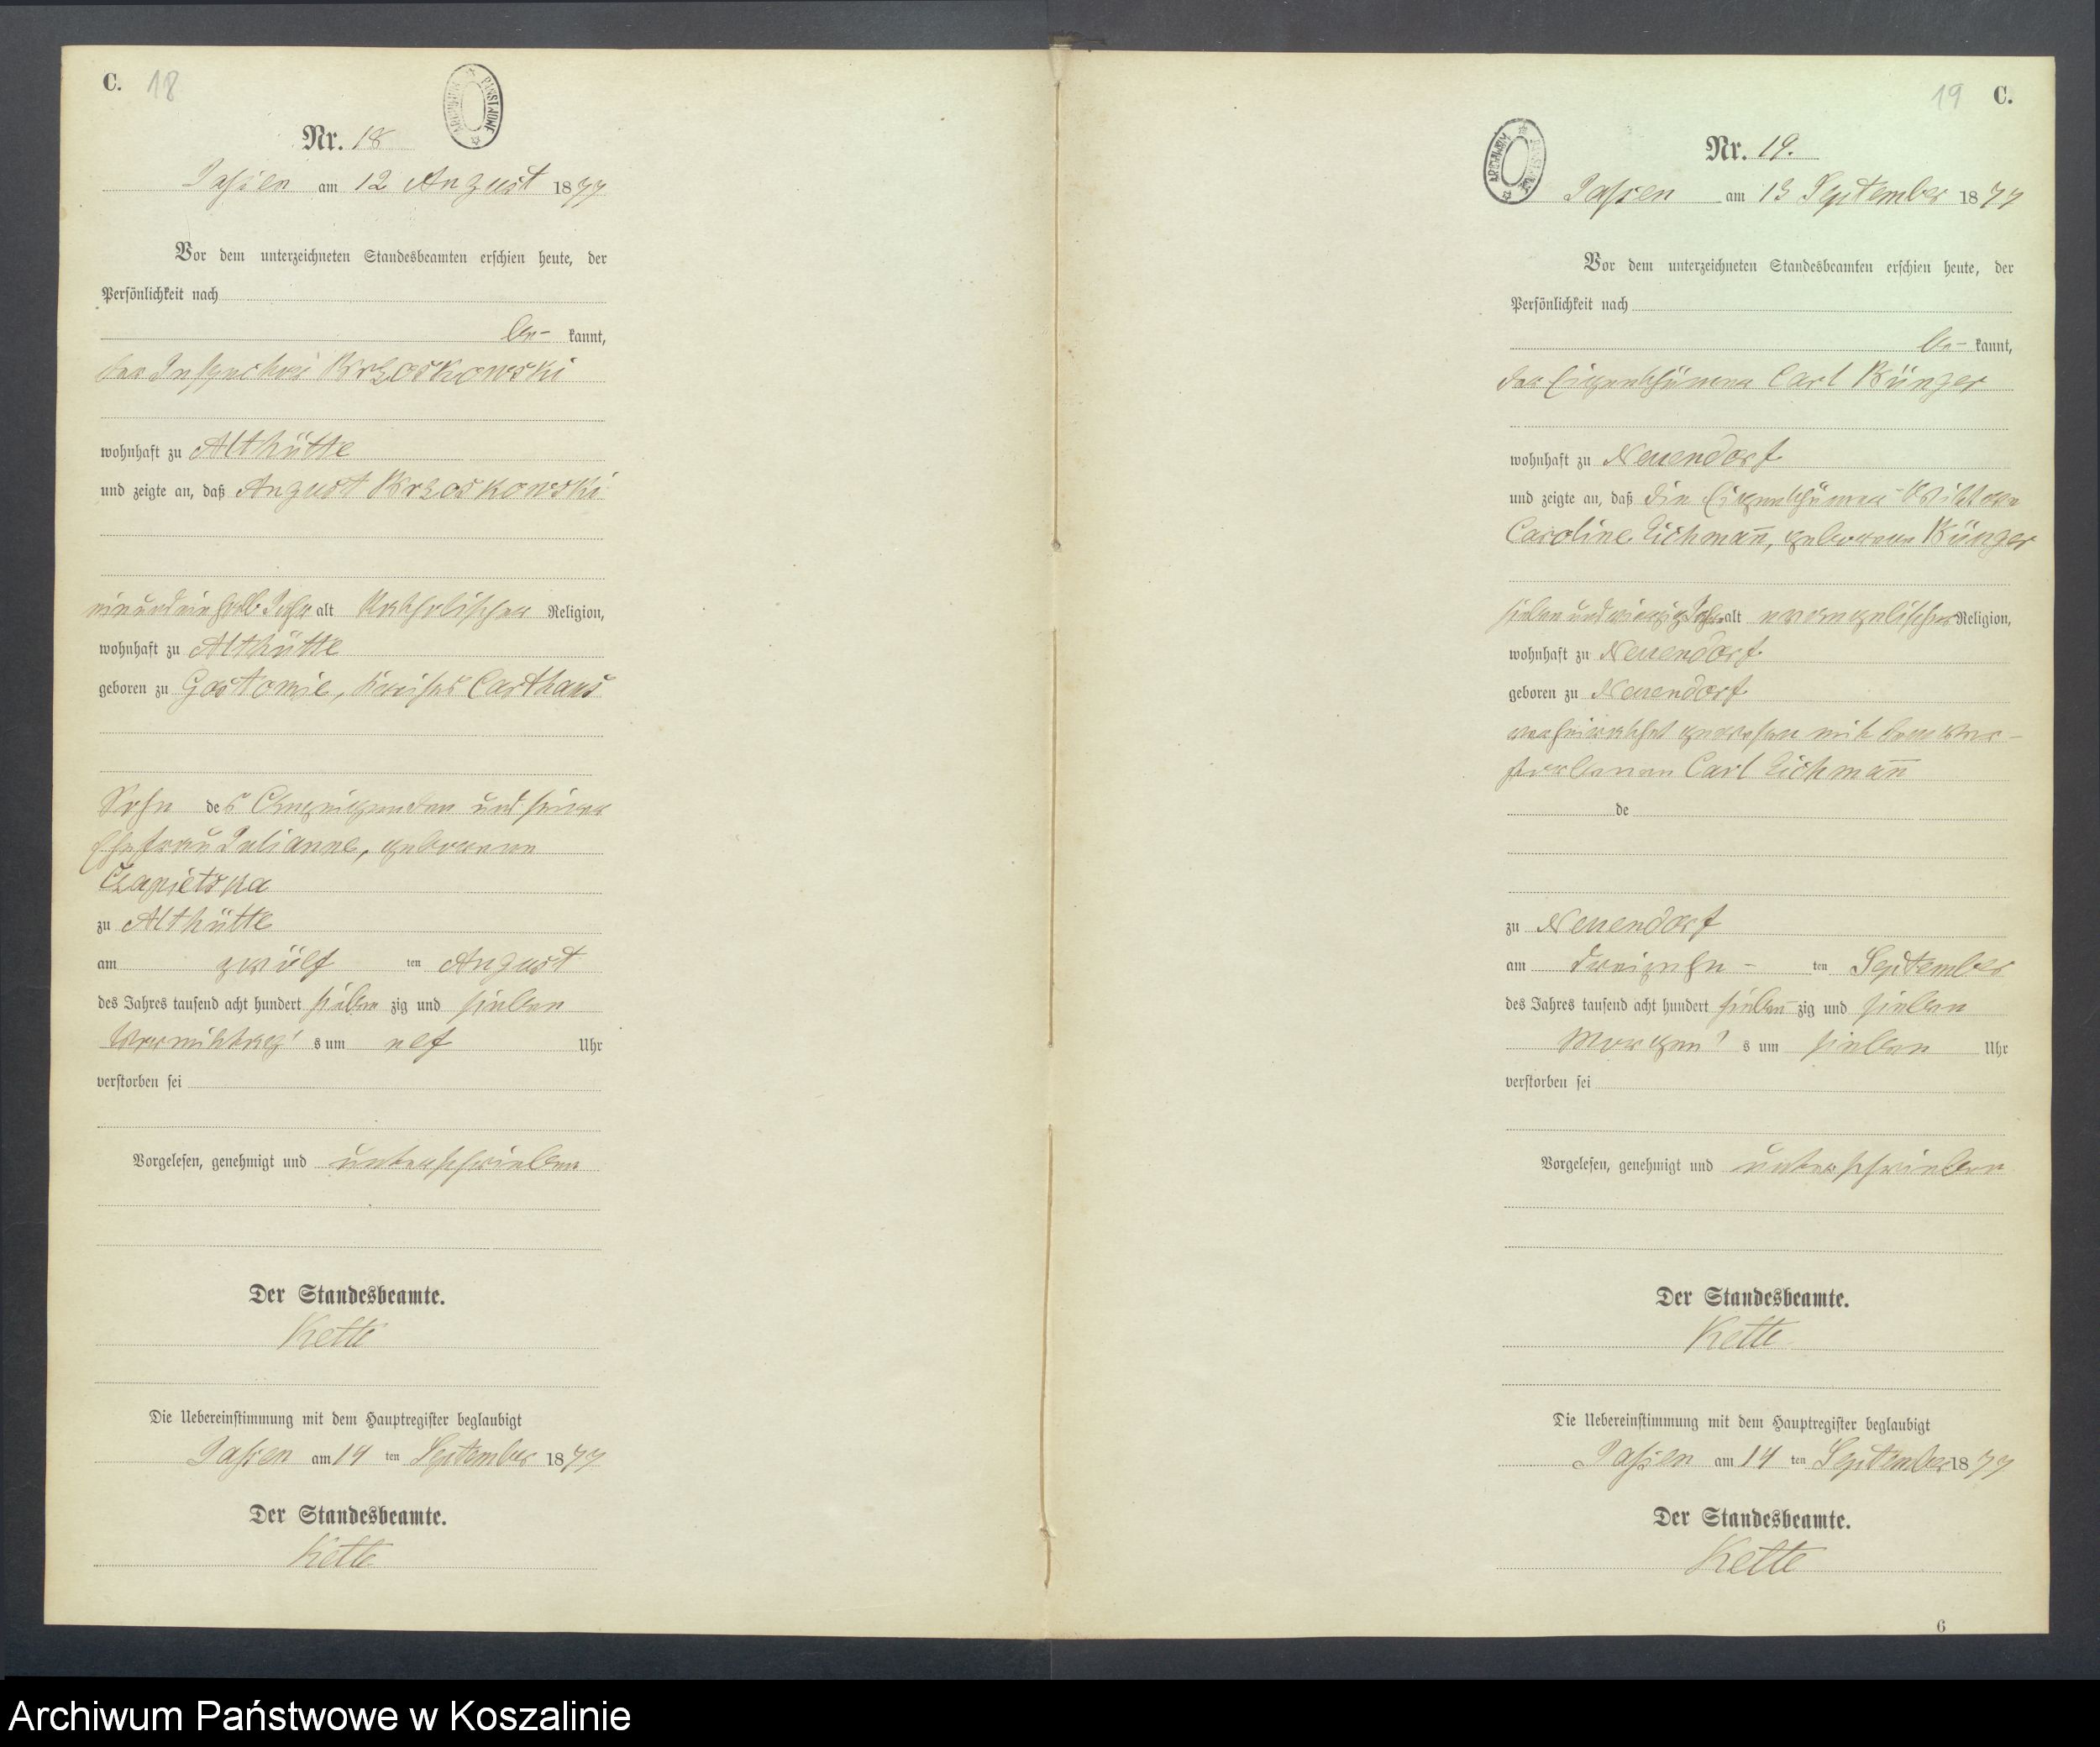 C. 18
ARCHIWUM PAŃSTWOWE
Nr. 18
Jassen am 12 August 1877
Vor dem unterzeichneten Standesbeamten erschien heute, der
Persönlichkeit nach
be- kannt,
der Inspector Brzoskowski
wohnhaft zu Althütte
und zeigte an, daß August Brzoskowski
ein und ein halb Jahr alt katholischer Religion,
wohnhaft zu Althütte
geboren zu Gostomie, Kreises Carthaus
Sohn des Anzeigenden und seiner
Ehefrau Julianne, geborene
Czapietska
zu Althütte
am zwölf ten August
des Jahres tausend acht hundert sieben zig und sieben
Vormittag s um elf Uhr
verstorben sei
Vorgelesen, genehmigt und unterschrieben
Der Standesbeamte.
Kette
Die Uebereinstimmung mit dem Hauptregister beglaubigt
Jassen am 14 ten September 1877
Der Standesbeamte.
Kette
19 C.
ARCHIWUM PAŃSTWOWE
Nr. 19.
Jassen am 13 September 1877
Vor dem unterzeichneten Standesbeamten erschien heute, der
Persönlichkeit nach
be- kannt,
der Eigenthümer Carl Bünger
wohnhaft zu Neuendorf
und zeigte an, daß die Eigenthümer-Wittwe
Caroline Eichmañ, geborene Bünger
sieben und vierzig Jahre alt evangelischer Religion,
wohnhaft zu Neuendorf
geboren zu Neuendorf
verheirathet gewesen mit dem ver-
storbenen Carl Eichmañ
de
zu Neuendorf
am dreizehn - ten September
des Jahres tausend acht hundert sieben- zig und sieben
Morgen s um sieben Uhr
verstorben sei
Vorgelesen, genehmigt und unterschrieben
Der Standesbeamte.
Kette
Die Uebereinstimmung mit dem Hauptregister beglaubigt
Jassen am 14 ten September 1877
Der Standesbeamte.
Kette
6
Archiwum Państwowe w Koszalinie